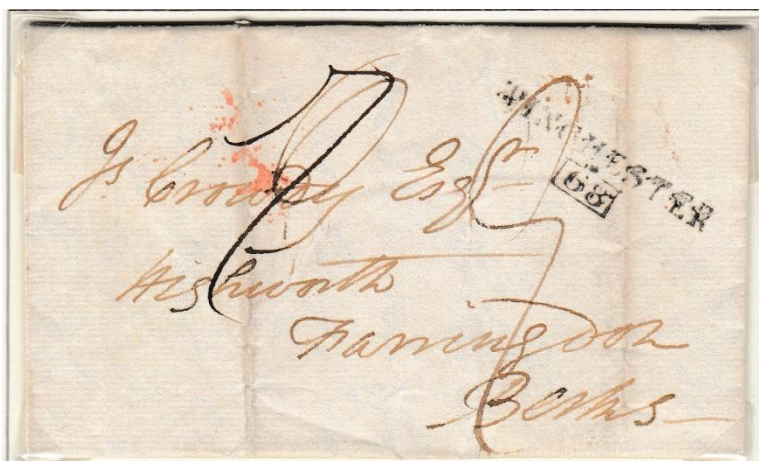 WINCHESTER
68
Js Crowdy Esqr
Highworth
Farringdon
Berks